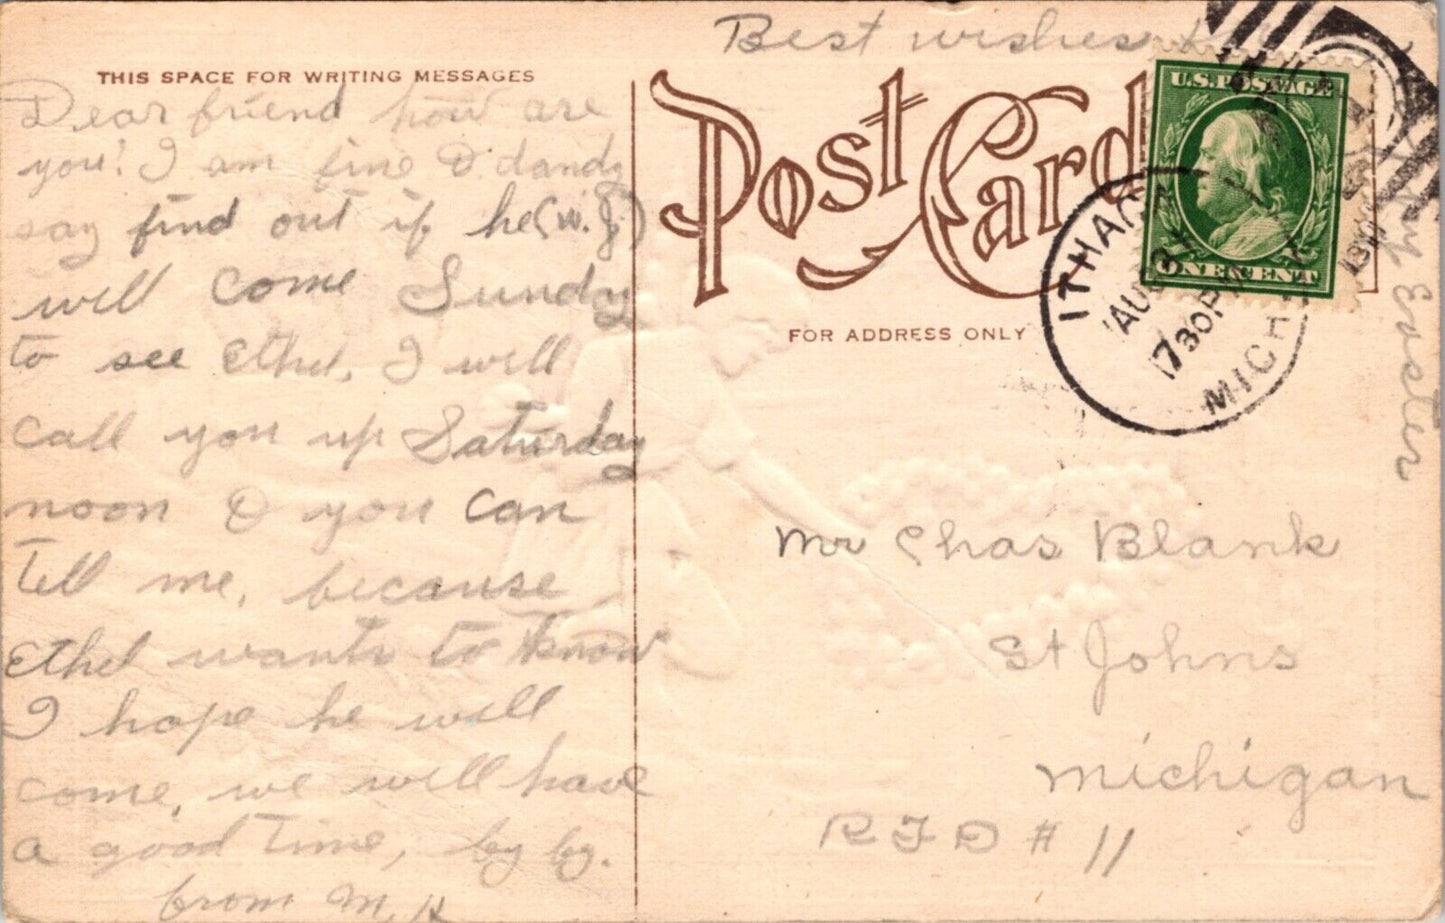 THIS SPACE FOR WRITING MESSAGES
Dear friend how are
you? I am fine & dandy
say find out if he (W. J.)
will come Sunday
to see Ethel, I will
call you up Saturday
noon & you can
tell me, because
Ethel wants to know
I hope he will
come, we will have
a good time, by by.
from M, H
Best wishes
Easter
Post Card
FOR ADDRESS ONLY
U.S. POSTAGE
ONE CENT
ITHACA
AUG
730P
MICH
Mr Chas Blank
St Johns
Michigan
RFD # 11